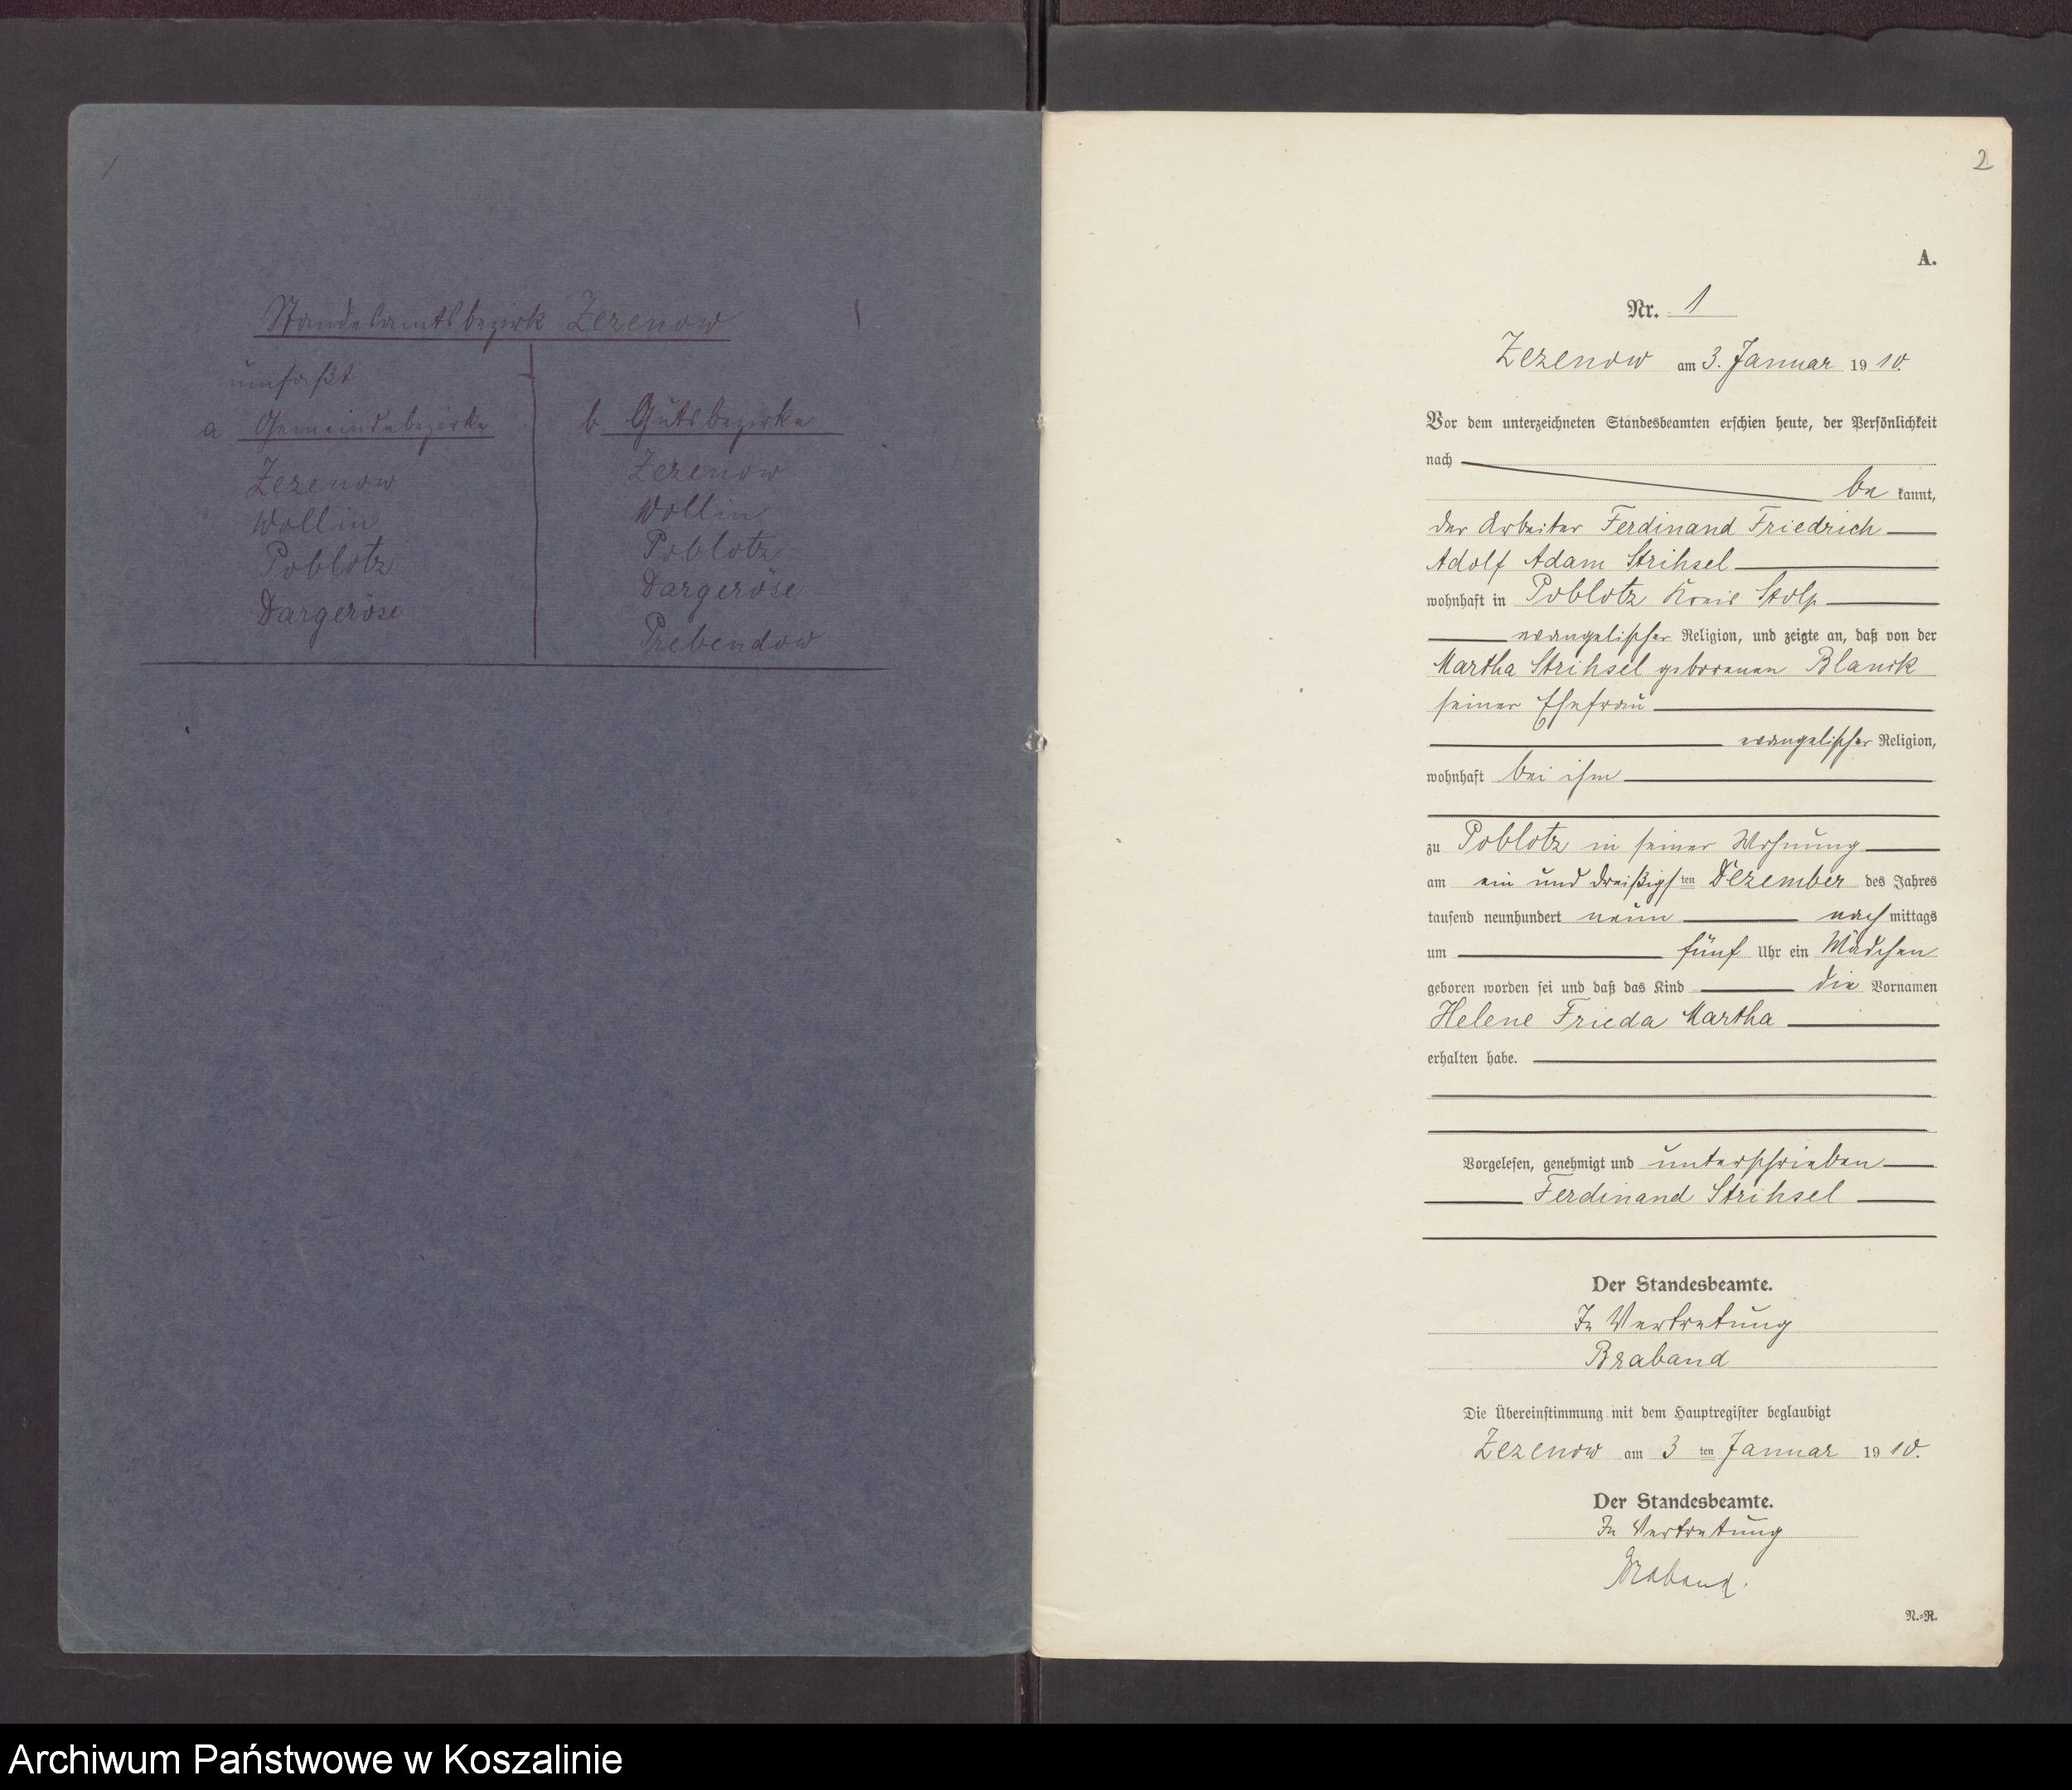 Standesamtsbezirk Zezenow
umfaßt
a Gemeindebezirke
Zezenow
Wollin
Poblotz
Dargeröse
b Gutsbezirke
Zezenow
Wollin
Poblotz
Dargeröse
Prebendow
2
A.
Nr. 1
Zezenow am 3. Januar 1910.
Vor dem unterzeichneten Standesbeamten erschien heute, der Persönlichkeit
nach
be kannt,
der Arbeiter Ferdinand Friedrich
Adolf Adam Strihsel
wohnhaft in Poblotz Kreis Stolp
evangelischer Religion, und zeigte an, daß von der
Martha Strihsel geborenen Blanck
seiner Ehefrau
evangelischer Religion,
wohnhaft bei ihm
zu Poblotz in seiner Wohnung
am ein und dreißigsten Dezember des Jahres
tausend neunhundert neun nachmittags
um fünf Uhr ein Mädchen
geboren worden sei und daß das Kind die Vornamen
Helene Frieda Martha
erhalten habe.
Vorgelesen, genehmigt und unterschrieben
Ferdinand Strihsel
Der Standesbeamte.
In Vertretung
Braband
Die Übereinstimmung mit dem Hauptregister beglaubigt
Zezenow am 3 ten Januar 1910.
Der Standesbeamte.
In Vertretung
Braband.
N.-R.
Archiwum Państwowe w Koszalinie